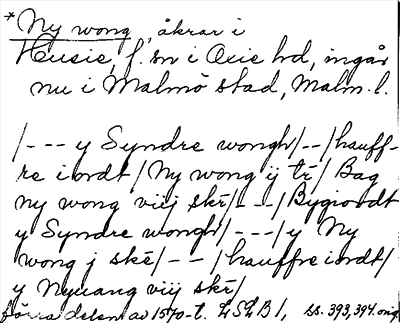 *Ny wong, åkrar i
Husie, f. sn i Oxie hd, ingår
nu i Malmö stad, Malm. l.
/--- y Syndre wongh/--/hauff-
re i ordt/Ny wong ij tr̄/Bag
ny wong viij skē/---/Bygiordt
y Syndre wongh/---/y Ny
wong j skē/--/hauffre iordt/
y Nyuang viij skē/
förra delen av 1570-t. LSLB1, ss. 393, 394. orig.